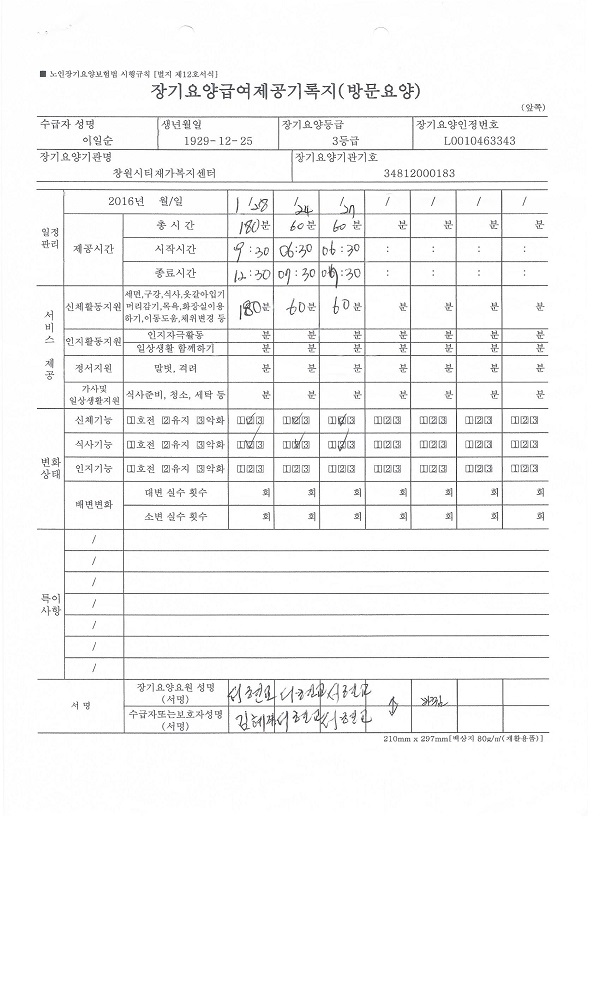 ■ 노인장기요양보험법 시행규칙 [별지 제12호서식]
장기요양급여제공기록지(방문요양)
(앞쪽)
수급자 성명 생년월일 장기요양등급 장기요양인정번호
이일순 1929-12-25 3등급 L0010463343
장기요양기관명 장기요양기관기호
창원시티재가복지센터 34812000183
일정 관리 2016년 월/일 1/28 /24 /27 / / / /
제공시간 총 시 간 180분 60분 60분 분 분 분 분
시작시간 9:30 06:30 06:30 : : : :
종료시간 12:30 07:30 07:30 : : : :
서비스 제공 신체활동지원 세면,구강,식사,옷갈아입기 머리감기,목욕,화장실이용 하기,이동도움,체위변경 등 180분 60분 60분 분 분 분 분
인지활동지원 인지자극활동 분 분 분 분 분 분 분
일상생활 함께하기 분 분 분 분 분 분 분
정서지원 말벗, 격려 분 분 분 분 분 분 분
가사및 일상생활지원 식사준비, 청소, 세탁 등 분 분 분 분 분 분 분
변화 상태 신체기능 1호전 2유지 3악화 1✓3 1✓3 1✓3 123 123 123 123
식사기능 1호전 2유지 3악화 1✓3 1✓3 1✓3 123 123 123 123
인지기능 1호전 2유지 3악화 123 123 123 123 123 123 123
배변변화 대변 실수 횟수 회 회 회 회 회 회 회
소변 실수 횟수 회 회 회 회 회 회 회
특이 사항 /
/
/
/
/
/
/
서 명 장기요양요원 성명 (서명)
수급자또는보호자성명 (서명)
210mm x 297mm[백상지 80g/㎡(재활용품)]